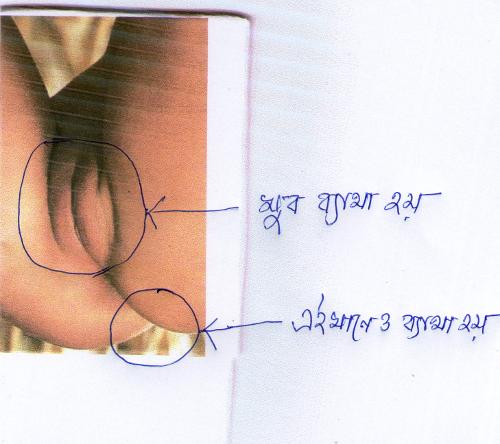 খুব ব্যাথা হয়
এইখানেও ব্যাথা হয়